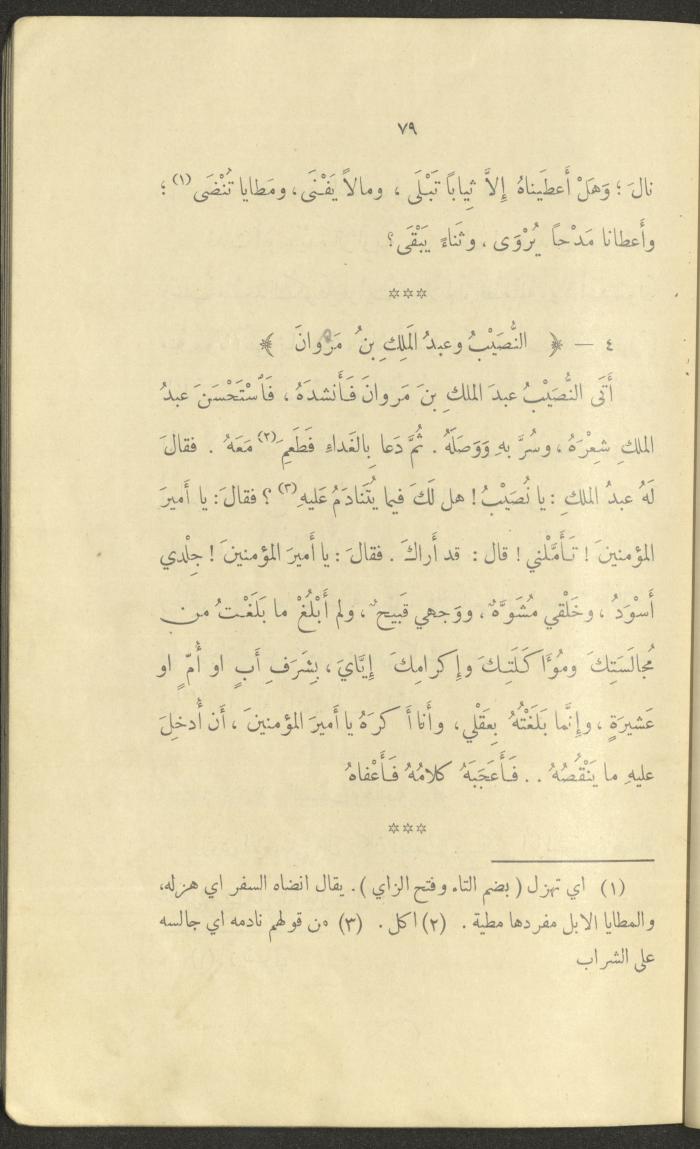 ٧٩
نالَ ؛ وَهَلْ أَعطَيناهُ إِلاَّ ثِياباً تَبْلَى ، ومالاً يَفْنَى ، ومَطايا تُنْضَى (١) ؛
وأَعطانا مَدْحاً يُرْوَى ، وثَناءً يَبْقَى ؟
***
٤ — ﴿ النُّصَيْبُ وعبدُ المَلِكِ بنُ مَرْوانَ ﴾
أَتَى النُّصَيْبُ عبدَ الملكِ بنَ مَروانَ فَأَنشدَهُ ، فَٱسْتَحْسَنَ عبدُ
الملكِ شِعْرَهُ ، وسُرَّ بهِ وَوَصَلَهُ . ثُمَّ دَعا بِالغَداءِ فَطَعِمَ (٢) مَعَهُ . فقالَ
لَهُ عبدُ الملكِ : يا نُصَيْبُ ! هل لَكَ فيما يُتَنادَمُ عَليهِ (٣) ؟ فقالَ : يا أَميرَ
المؤمنينَ ! تَأَمَّلْني ! قال : قد أَراكَ . فقالَ : يا أَميرَ المؤمنينَ ! جِلْدي
أَسْوَدُ ، وخَلْقي مُشَوَّهٌ ، ووَجهي قَبيحٌ ، ولم أَبْلُغْ ما بَلَغْتُ من
مُجالَسَتِكَ ومُؤَاكَلَتِكَ وإِكرامِكَ إِيَّايَ ، بِشَرَفِ أَبٍ او أُمٍّ او
عَشيرَةٍ ، وإِنَّما بَلَغْتُهُ بِعَقْلي ، وأَنا أَكرَهُ يا أَميرَ المؤمنينَ ، أَن أُدخِلَ
عليهِ ما يَنْقُصُهُ . . فَأَعَجَبَهُ كلامُهُ فَأَعْفاهُ
***
(١) اي تهزل ( بضم التاء وفتح الزاي ) . يقال انضاه السفر اي هزله ،
والمطايا الابل مفردها مطية . (٢) اكل . (٣) من قولهم نادمه اي جالسه
على الشراب